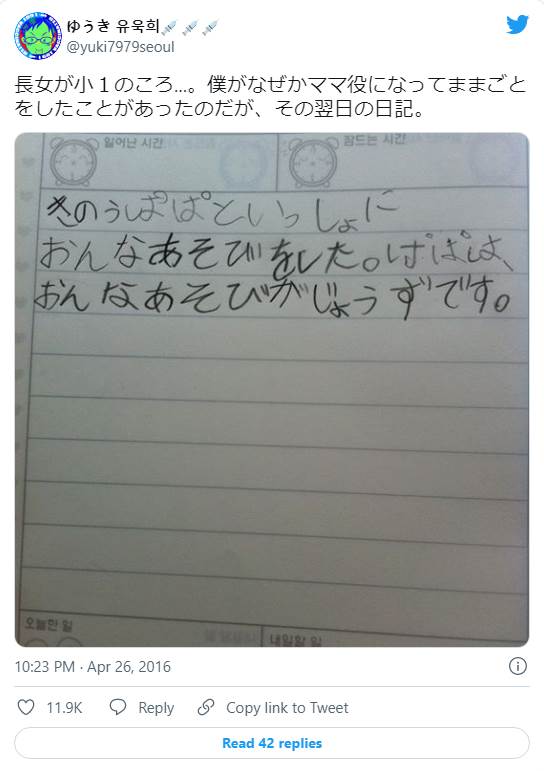 ゆうき 유욱희
@yuki7979seoul
長女が小１のころ...。僕がなぜかママ役になってままごと
をしたことがあったのだが、その翌日の日記。
일어난 시간
잠드는 시간
きのうぱぱといっしょに
おんなあそびをした。ぱぱは、
おんなあそびがじょうずです。
오늘한 일
내일할 일
10:23 PM · Apr 26, 2016
11.9K Reply Copy link to Tweet
Read 42 replies